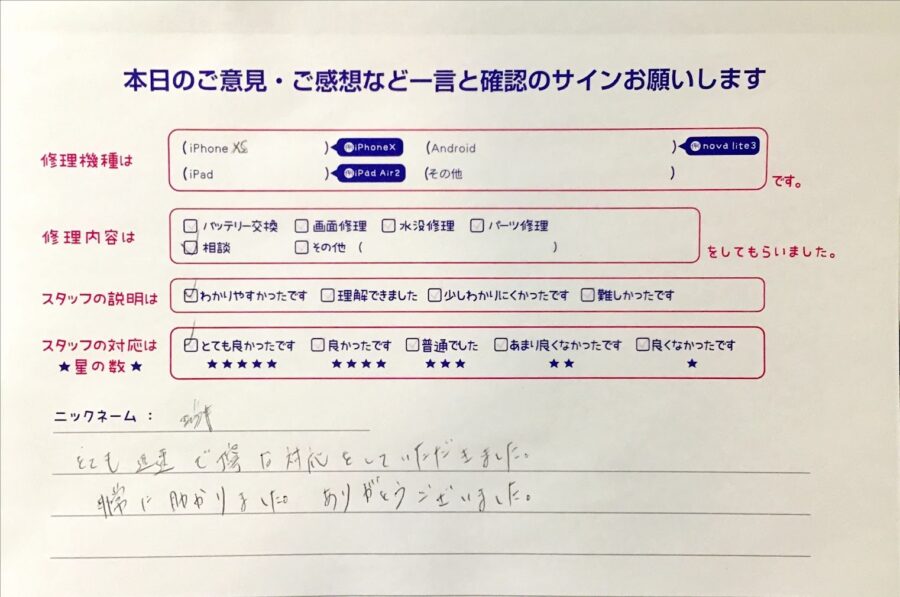 本日のご意見・ご感想など一言と確認のサインお願いします
修理機種は (iPhone XS ) 例 iPhoneX (Android ) 例 nova lite3
(iPad ) 例 iPad Air2 (その他 ) です。
修理内容は バッテリー交換 画面修理 水没修理 パーツ修理
相談 その他 ( ) をしてもらいました。
スタッフの説明は わかりやすかったです 理解できました 少しわかりにくかったです 難しかったです
スタッフの対応は とても良かったです 良かったです 普通でした あまり良くなかったです 良くなかったです
★星の数★ ★★★★★ ★★★★ ★★★ ★★ ★
ニックネーム：
とても 迅速 で な対応をしていただきました。
非常に助かりました。ありがとうございました。